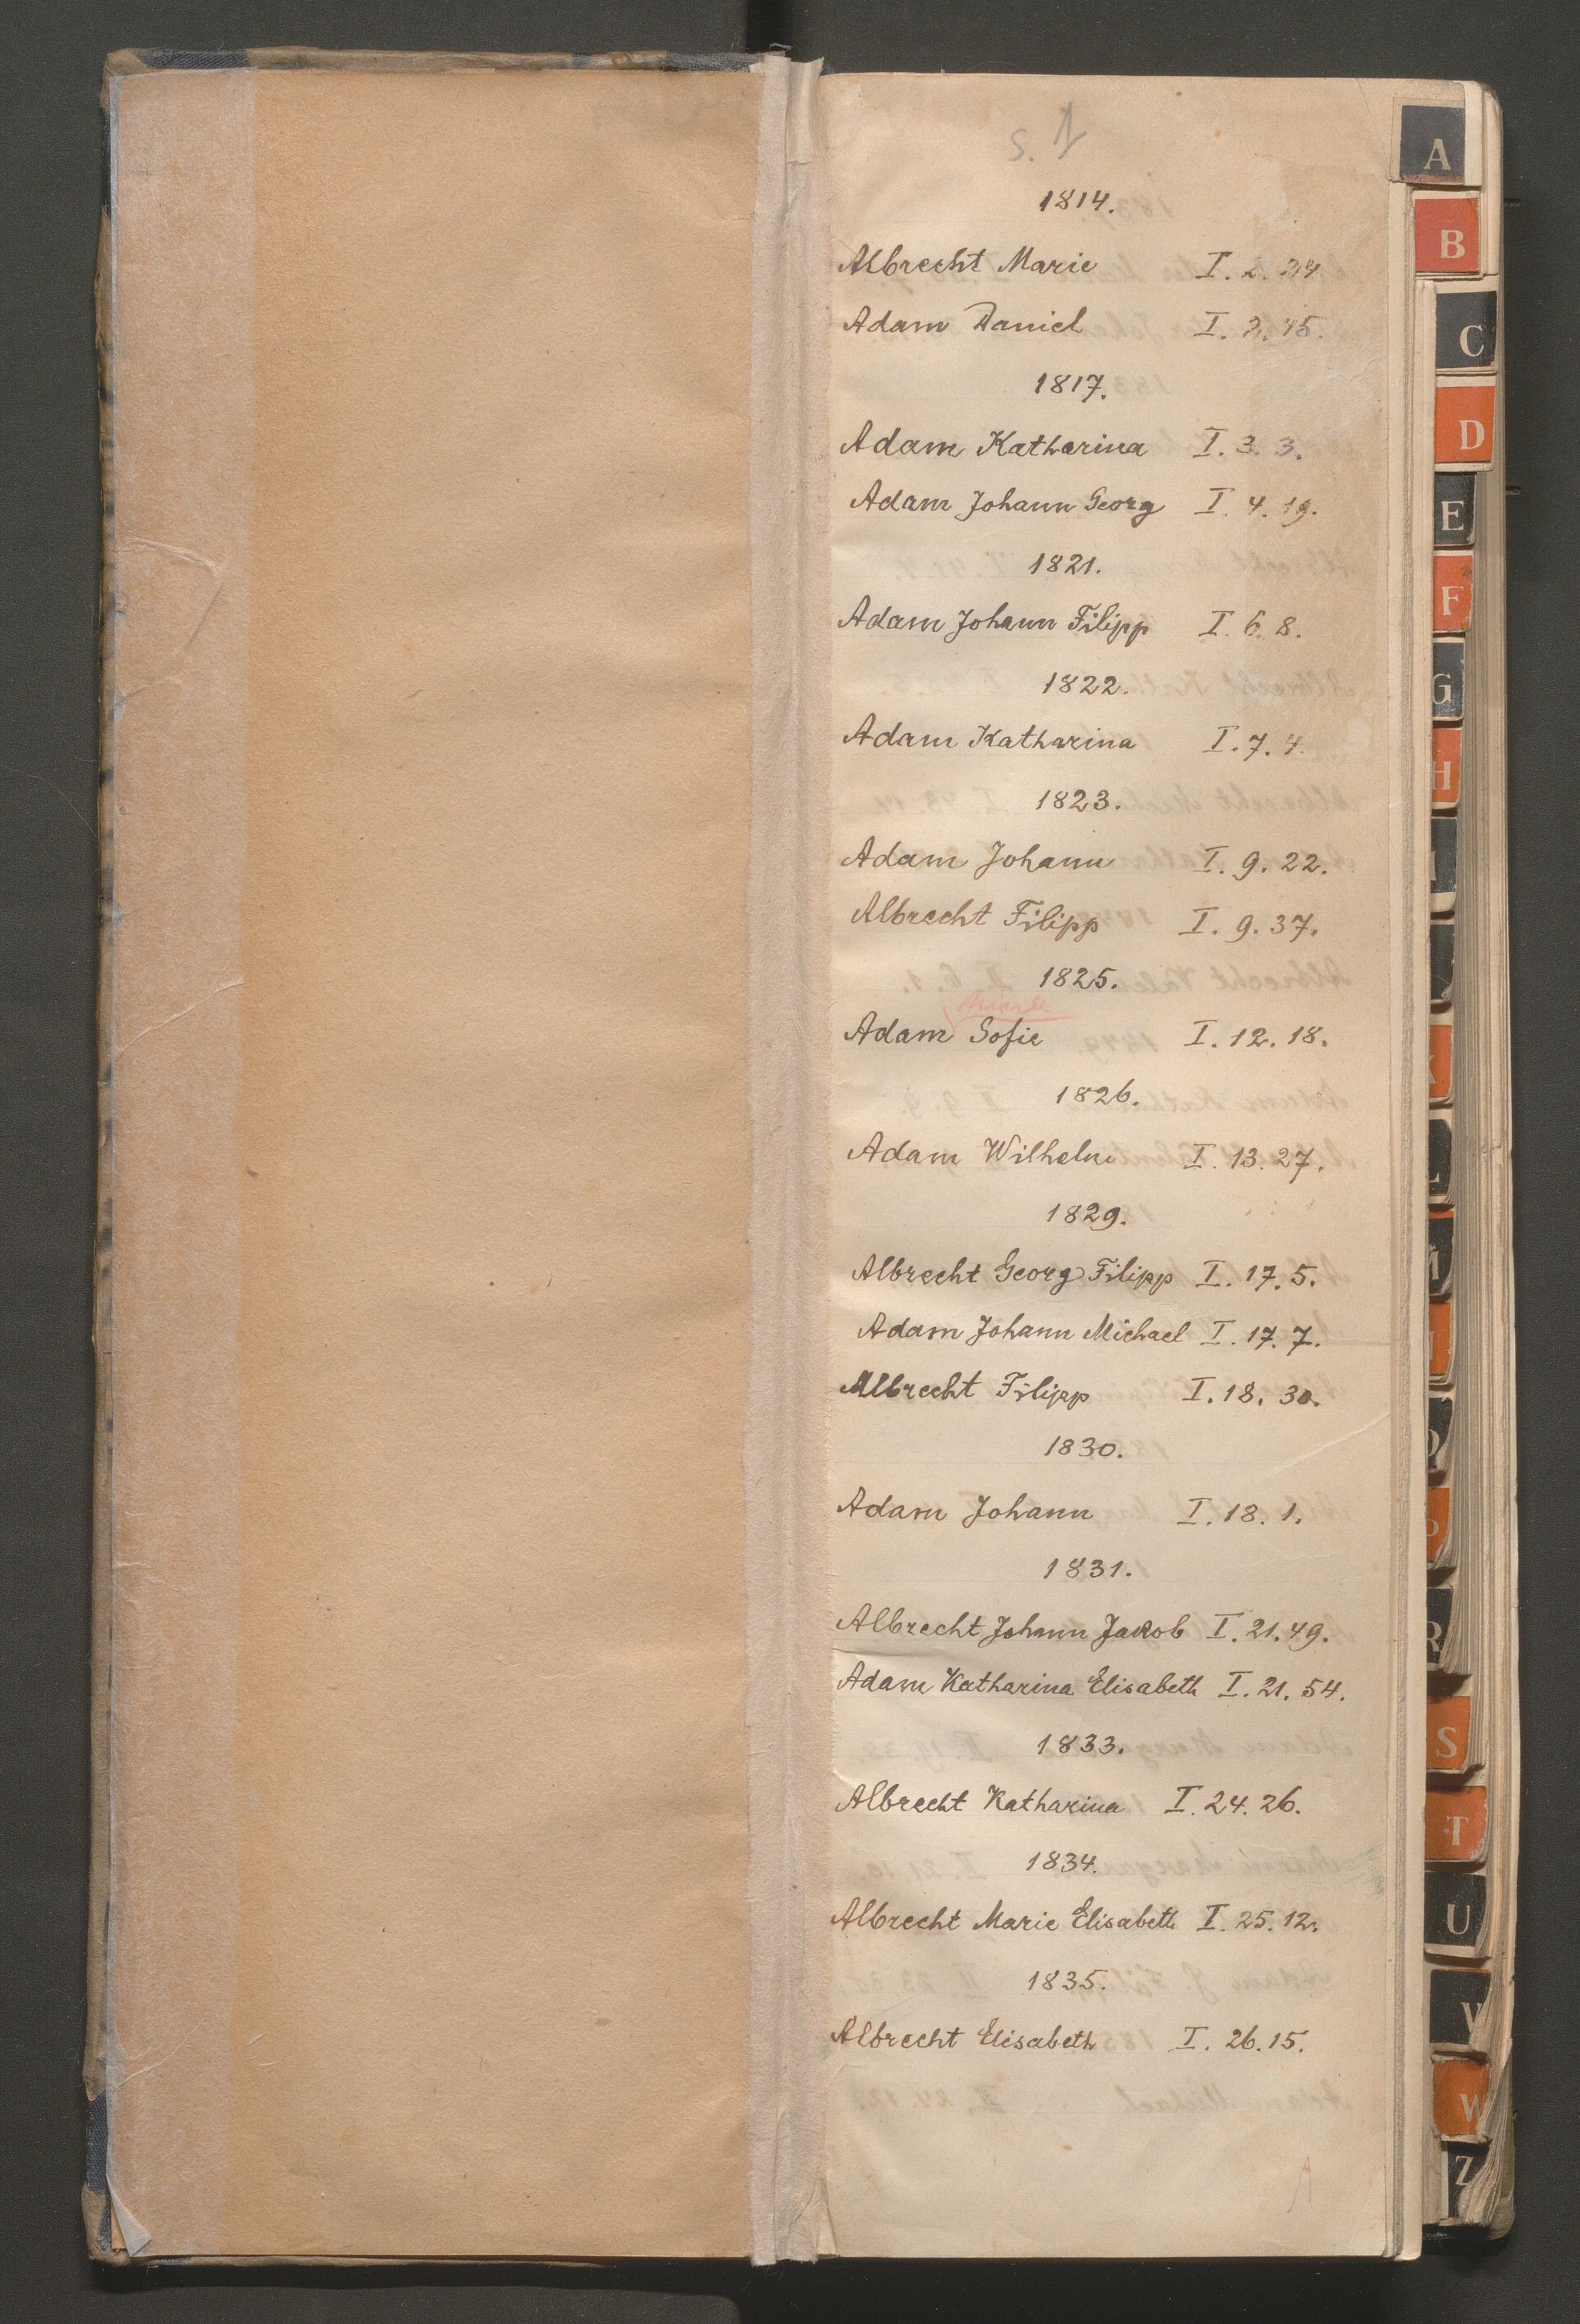 S. 1
1814.
Albrecht Marie I. 2. 34.
Adam Daniel I. 2. 45.
1817.
Adam Katharina I. 3. 3.
Adam Johann Georg I. 4. 19.
1821.
Adam Johann Filipp I. 6. 8.
1822.
Adam Katharina I. 7. 4.
1823.
Adam Johann I. 9. 22.
Albrecht Filipp I. 9. 37.
1825.
Adam Sofie I. 12. 18.
1826.
Adam Wilhelm I. 13. 27.
1829.
Albrecht Georg Filipp I. 17. 5.
Adam Johann Michael I. 17. 7.
Albrecht Filipp I. 18. 30.
1830.
Adam Johann I. 18. 1.
1831.
Albrecht Johann Jakob I. 21. 49.
Adam Katharina Elisabeth I. 21. 54.
1833.
Albrecht Katharina I. 24. 26.
1834.
Albrecht Marie Elisabeth I. 25. 12.
1835.
Albrecht Elisabeth I. 26. 15.
A
B
C
D
E
F
G
H
K
L
M
O
P
R
S
T
U
V
W
Z